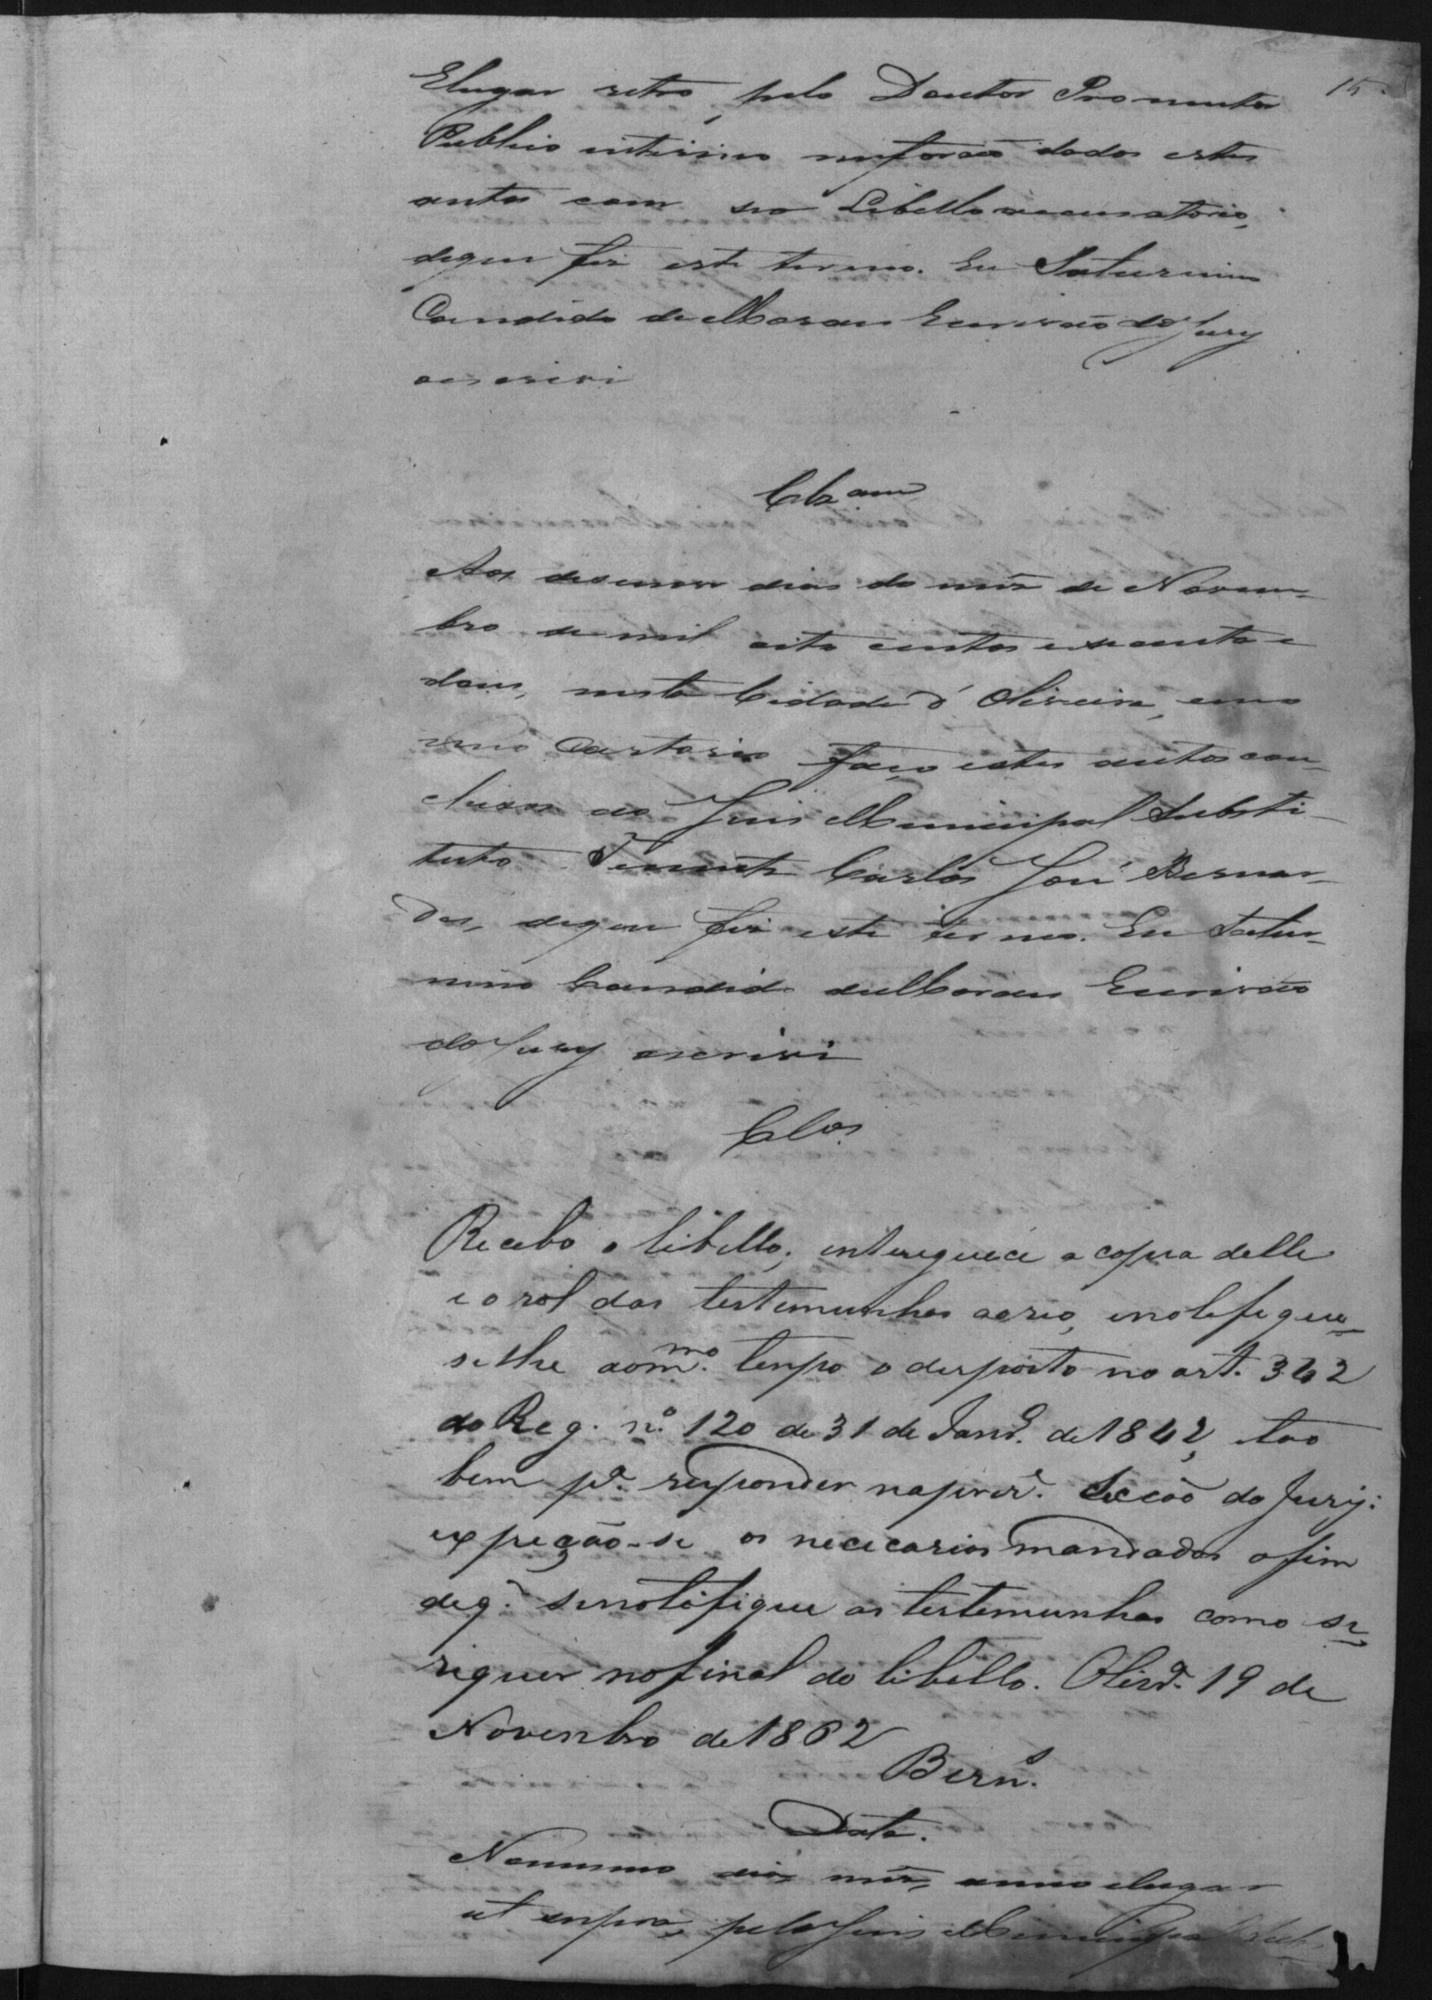 15
Elugar retro, pelo Doutor Promutor
Publico interino meforão dados estes
autos com seo Libello accusatorio,
dequi fiz este termo. Eu Saturnino
Candido de Moraes Escrivão do Jury
oescrivi
Clzam
Aos desenove dias do mez de Novem-
bro de mil oito centos esecenta e
dous, nesta Cidade d'Oliveira, emo
meo Cartorio faço estes autos con-
cluzos ao Juis Municipal Substi-
tuto Tenente Carlos José Bernar-
des, dequi fiz este termo. Eu Satur-
nino Candido deMoraes Escrivão
doJury escrivi
Clos
Recebo o libello; entreguece a copia delle
e o rol das testemunhas aoreo, enotefique
selhe aommo. tenpo o desposto no art. 342
do Reg. nº. 120 de 31 de Janrº. de 1842, etao
bem pª. responder naprirª. Secção do Jury:
expeção-se os nececarios mandados afim
deq. senotifique as testemunhas como se
riquer nofinal do libello. Olivrª. 19 de
Novenbro de 1862
Berns.
Data.
Nomesmo dia, mez, anno elugar
ut supra, peloJuis Municipal Subs